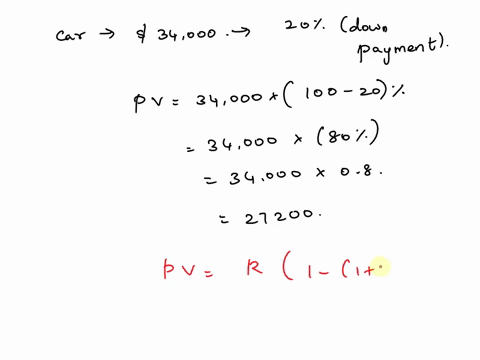 car → $ 34,000. → 20% (down payment).
PV = 34,000 × ( 100 - 20) %
= 34,000 × (80%)
= 34,000 × 0.8.
= 27200.
PV = R ( 1 - (1+